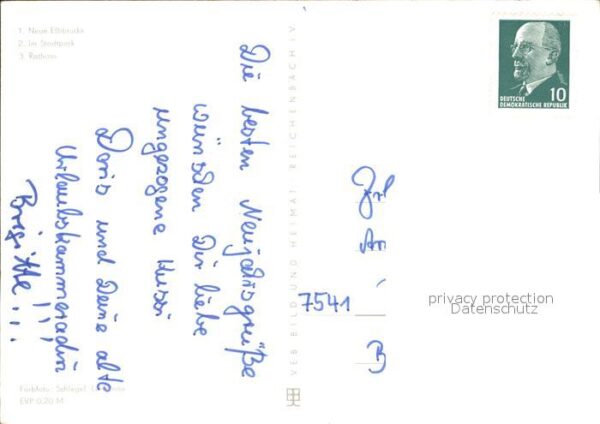 1. Neue Elbbrücke
2. Im Stadtpark
3. Rathaus
Die besten Neujahrsgrüße
wünschen Dir liebe
ungezogene Mussi
Doris und Deine alte
Urlaubskammeradin
Brigitte!!! ...
Farbfoto: Schlegel,
EVP 0,20 M
VEB BILD UND HEIMAT REICHENBACH I.V.
10
DEUTSCHE
DEMOKRATISCHE REPUBLIK
7541
B
privacy protection
Datenschutz